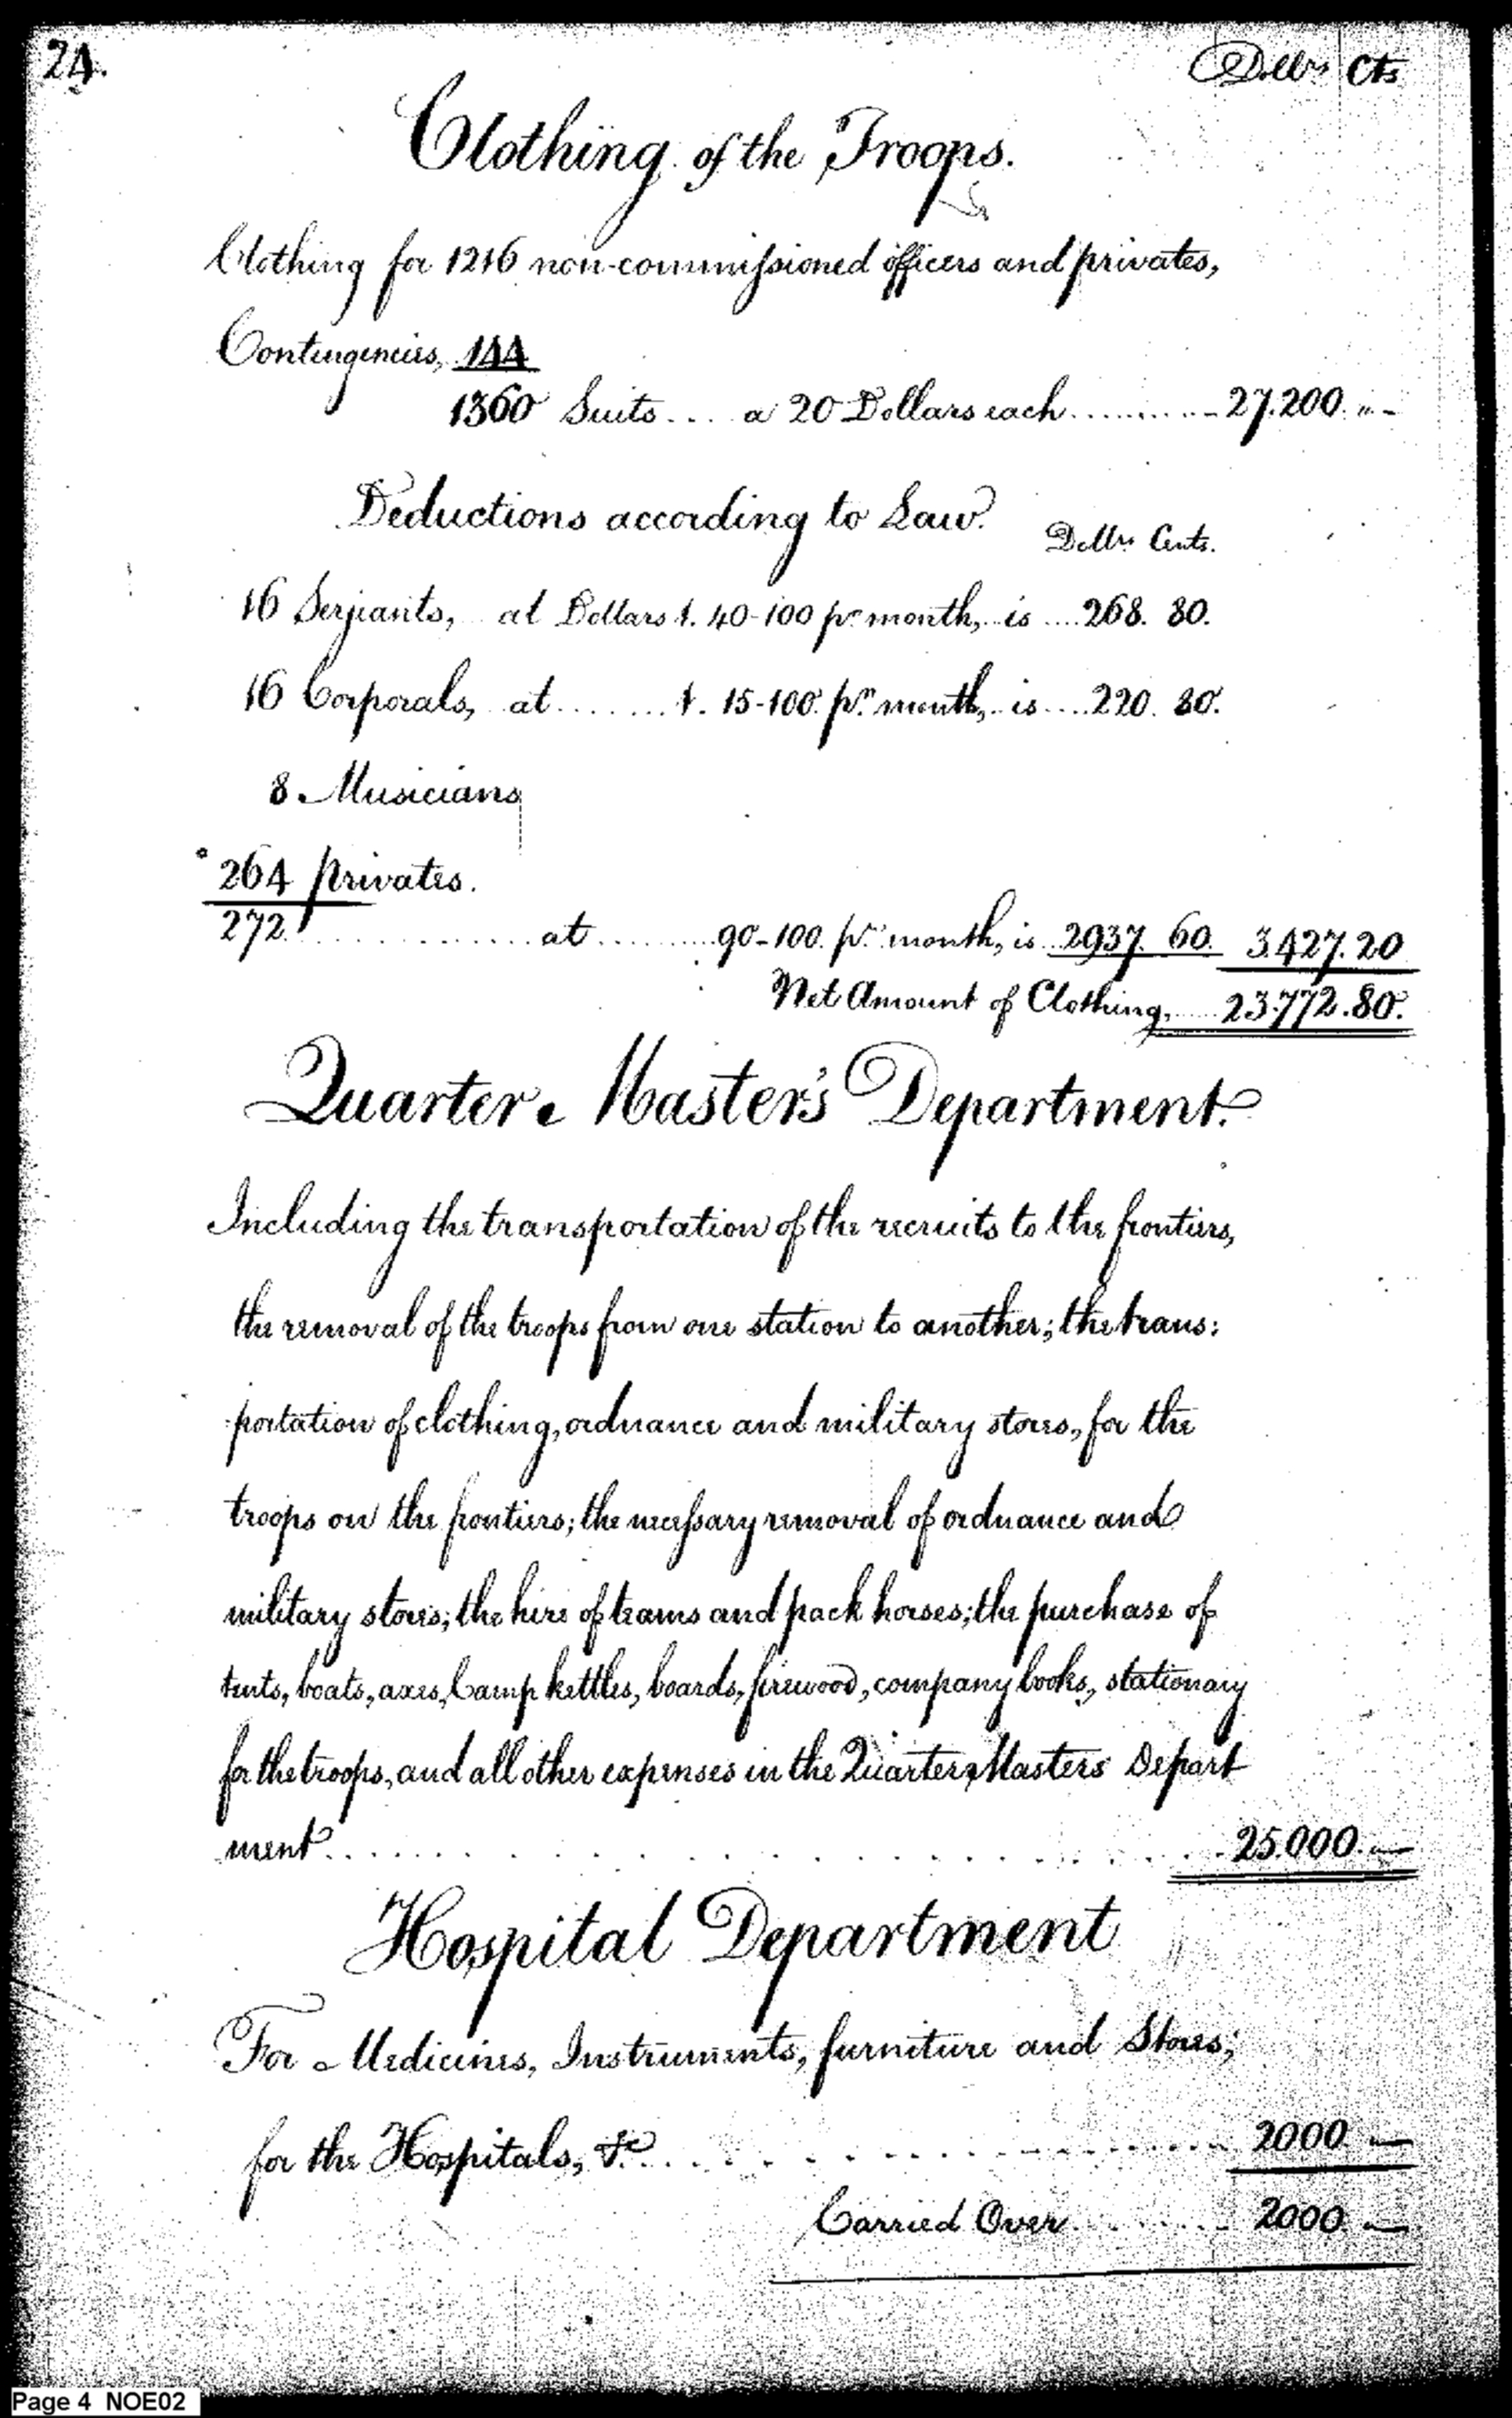 24.
Dollrs Cts
Clothing of the Troops.
Clothing for 1216 non-commissioned officers and privates,
Contingencies, 144
1360 Suits .... a 20 Dollars each ........... 27.200. " -
Deductions according to Law.
Dollrs Cents.
16 Serjeants, at Dollars 1. 40-100 pr month, is .... 268. 80.
16 Corporals, at ....... 1. 15-100. pr month, is .... 220. 80.
8. Musicians
264 privates.
272. ............. at ......... 90-100. pr month, is .. 2937. 60. 3.427.20
Net Amount of Clothing, ..... 23.772.80.
Quarter Master's Department.
Including the transportation of the recruits to the frontiers,
the removal of the troops from one station to another; the trans:
portation of clothing, ordnance and military stores, for the
troops on the frontiers; the necessary removal of ordnance and
military stores; the hire of teams and pack horses; the purchase of
tents, boats, axes, Camp kettles, boards, firewood, company books, stationary
for the troops, and all other expenses in the Quarter Masters Depart
ment. .................... 25.000. —
Hospital Department
For Medicines, Instruments, furniture and Stores;
for the Hospitals, &c ................ 2000. —
Carried Over ......... 2000. —
Page 4 NOE02